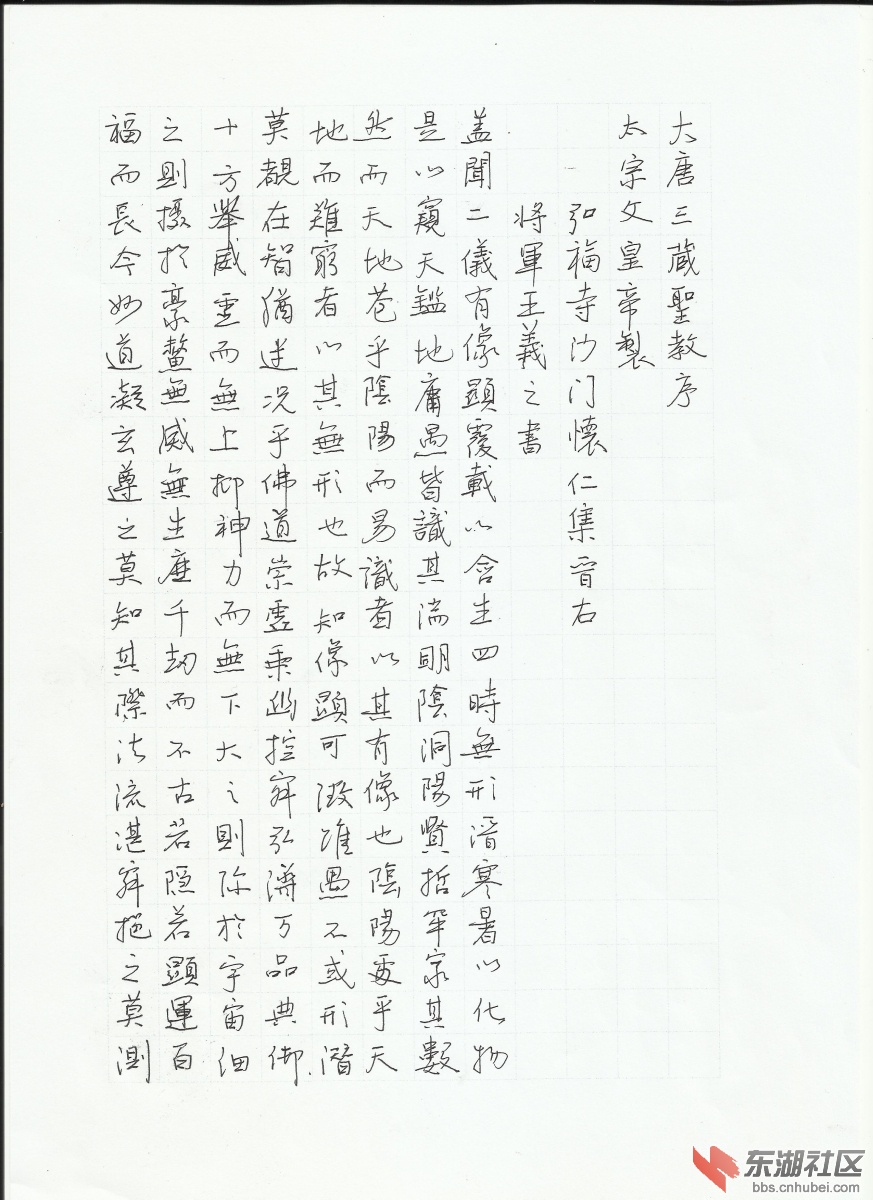 大唐三藏聖教序
太宗文皇帝製
弘福寺沙门懷仁集晋右
将軍王羲之書
盖聞二儀有像顯覆載以含生四時無形潛寒暑以化物
是以窺天鑑地庸愚皆識其端明陰洞陽賢哲罕窮其數
然而天地苞乎陰陽而易識者以其有像也陰陽處乎天
地而難窮者以其無形也故知像顯可徵雖愚不或形潛
莫覩在智猶迷况乎佛道崇虛乘幽控寂弘濟万品典御
十方舉威靈而無上抑神力而無下大之則弥於宇宙細
之則攝於豪釐無威無生歷千劫而不古若隐若顯運百
福而長今妙道凝玄遵之莫知其際法流湛寂挹之莫測
东湖社区
bbs.cnhubei.com